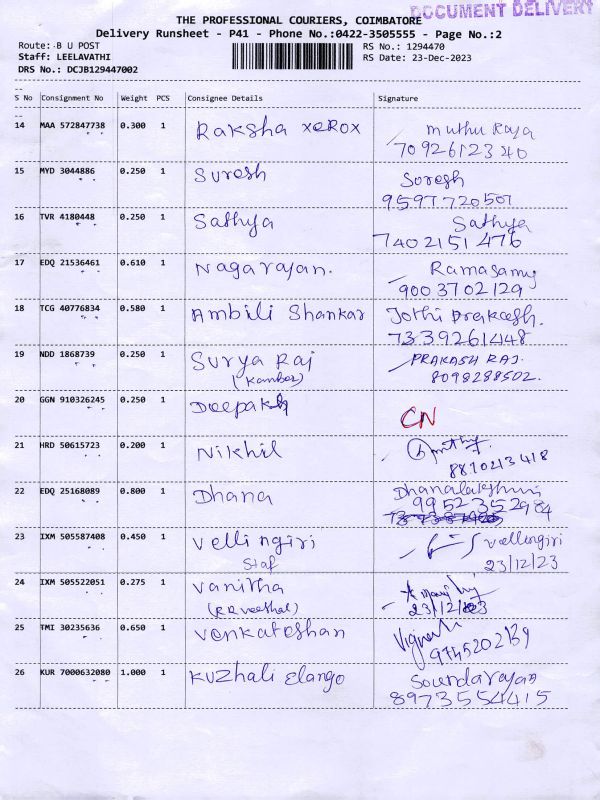 DOCUMENT DELIVERY
THE PROFESSIONAL COURIERS, COIMBATORE
Delivery Runsheet - P41 - Phone No.:0422-3505555 - Page No.:2
Route: B U POST
RS No.: 1294470
Staff: LEELAVATHI
RS Date: 23-Dec-2023
DRS No.: DCJB129447002
S No Consignment No Weight PCS Consignee Details Signature
14 MAA 572847738 0.300 1 Raksha xeRox muthu Raja
7092612340
15 MYD 3044886 0.250 1 Suresh Suresh
9597720507
16 TVR 4180448 0.250 1 Sathya Sathya
7402151476
17 EDQ 21536461 0.610 1 Nagarajan. Ramasamy
9003702129
18 TCG 40776834 0.580 1 Ambili Shankar Jothi Prakash.
7339261448
19 NDD 1868739 0.250 1 Surya Raj PRAKASH RAJ.
8098288502.
20 GGN 910326245 0.250 1 Deepak CN
21 HRD 50615723 0.200 1 Nikhil
8810213418
22 EDQ 25168089 0.800 1 Dhana Dhanalakshmi
9952352984
23 IXM 505587408 0.450 1 Vellingiri Vellingiri
Staf 23/12/23
24 IXM 505522051 0.275 1 Vanitha
23/12/23
25 TMI 30235636 0.650 1 Venkateshan
9745202139
26 KUR 7000632080 1.000 1 Kuzhali Elango Soundarajan
8973554415